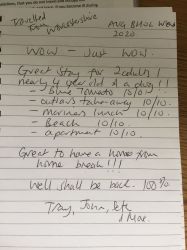 Travelled From Worcestershire
AUG BHOL WEND
2020
WOW - Just WOW.
Great Stay for 2 adults!
nearly 4 year old & a dog!!!
- Blue Tomato 10/10
- outlaws takeaway 10/10.
- mariners lunch 10/10.
- Beach 10/10
- apartment 10/10.
Great to have a home from
home break!!!
We'll shall be back. 100%
John, Pete
& Max.